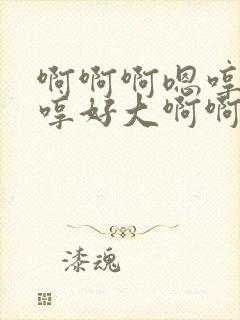 啊啊啊嗯哼
哼好大啊啊
漆魂